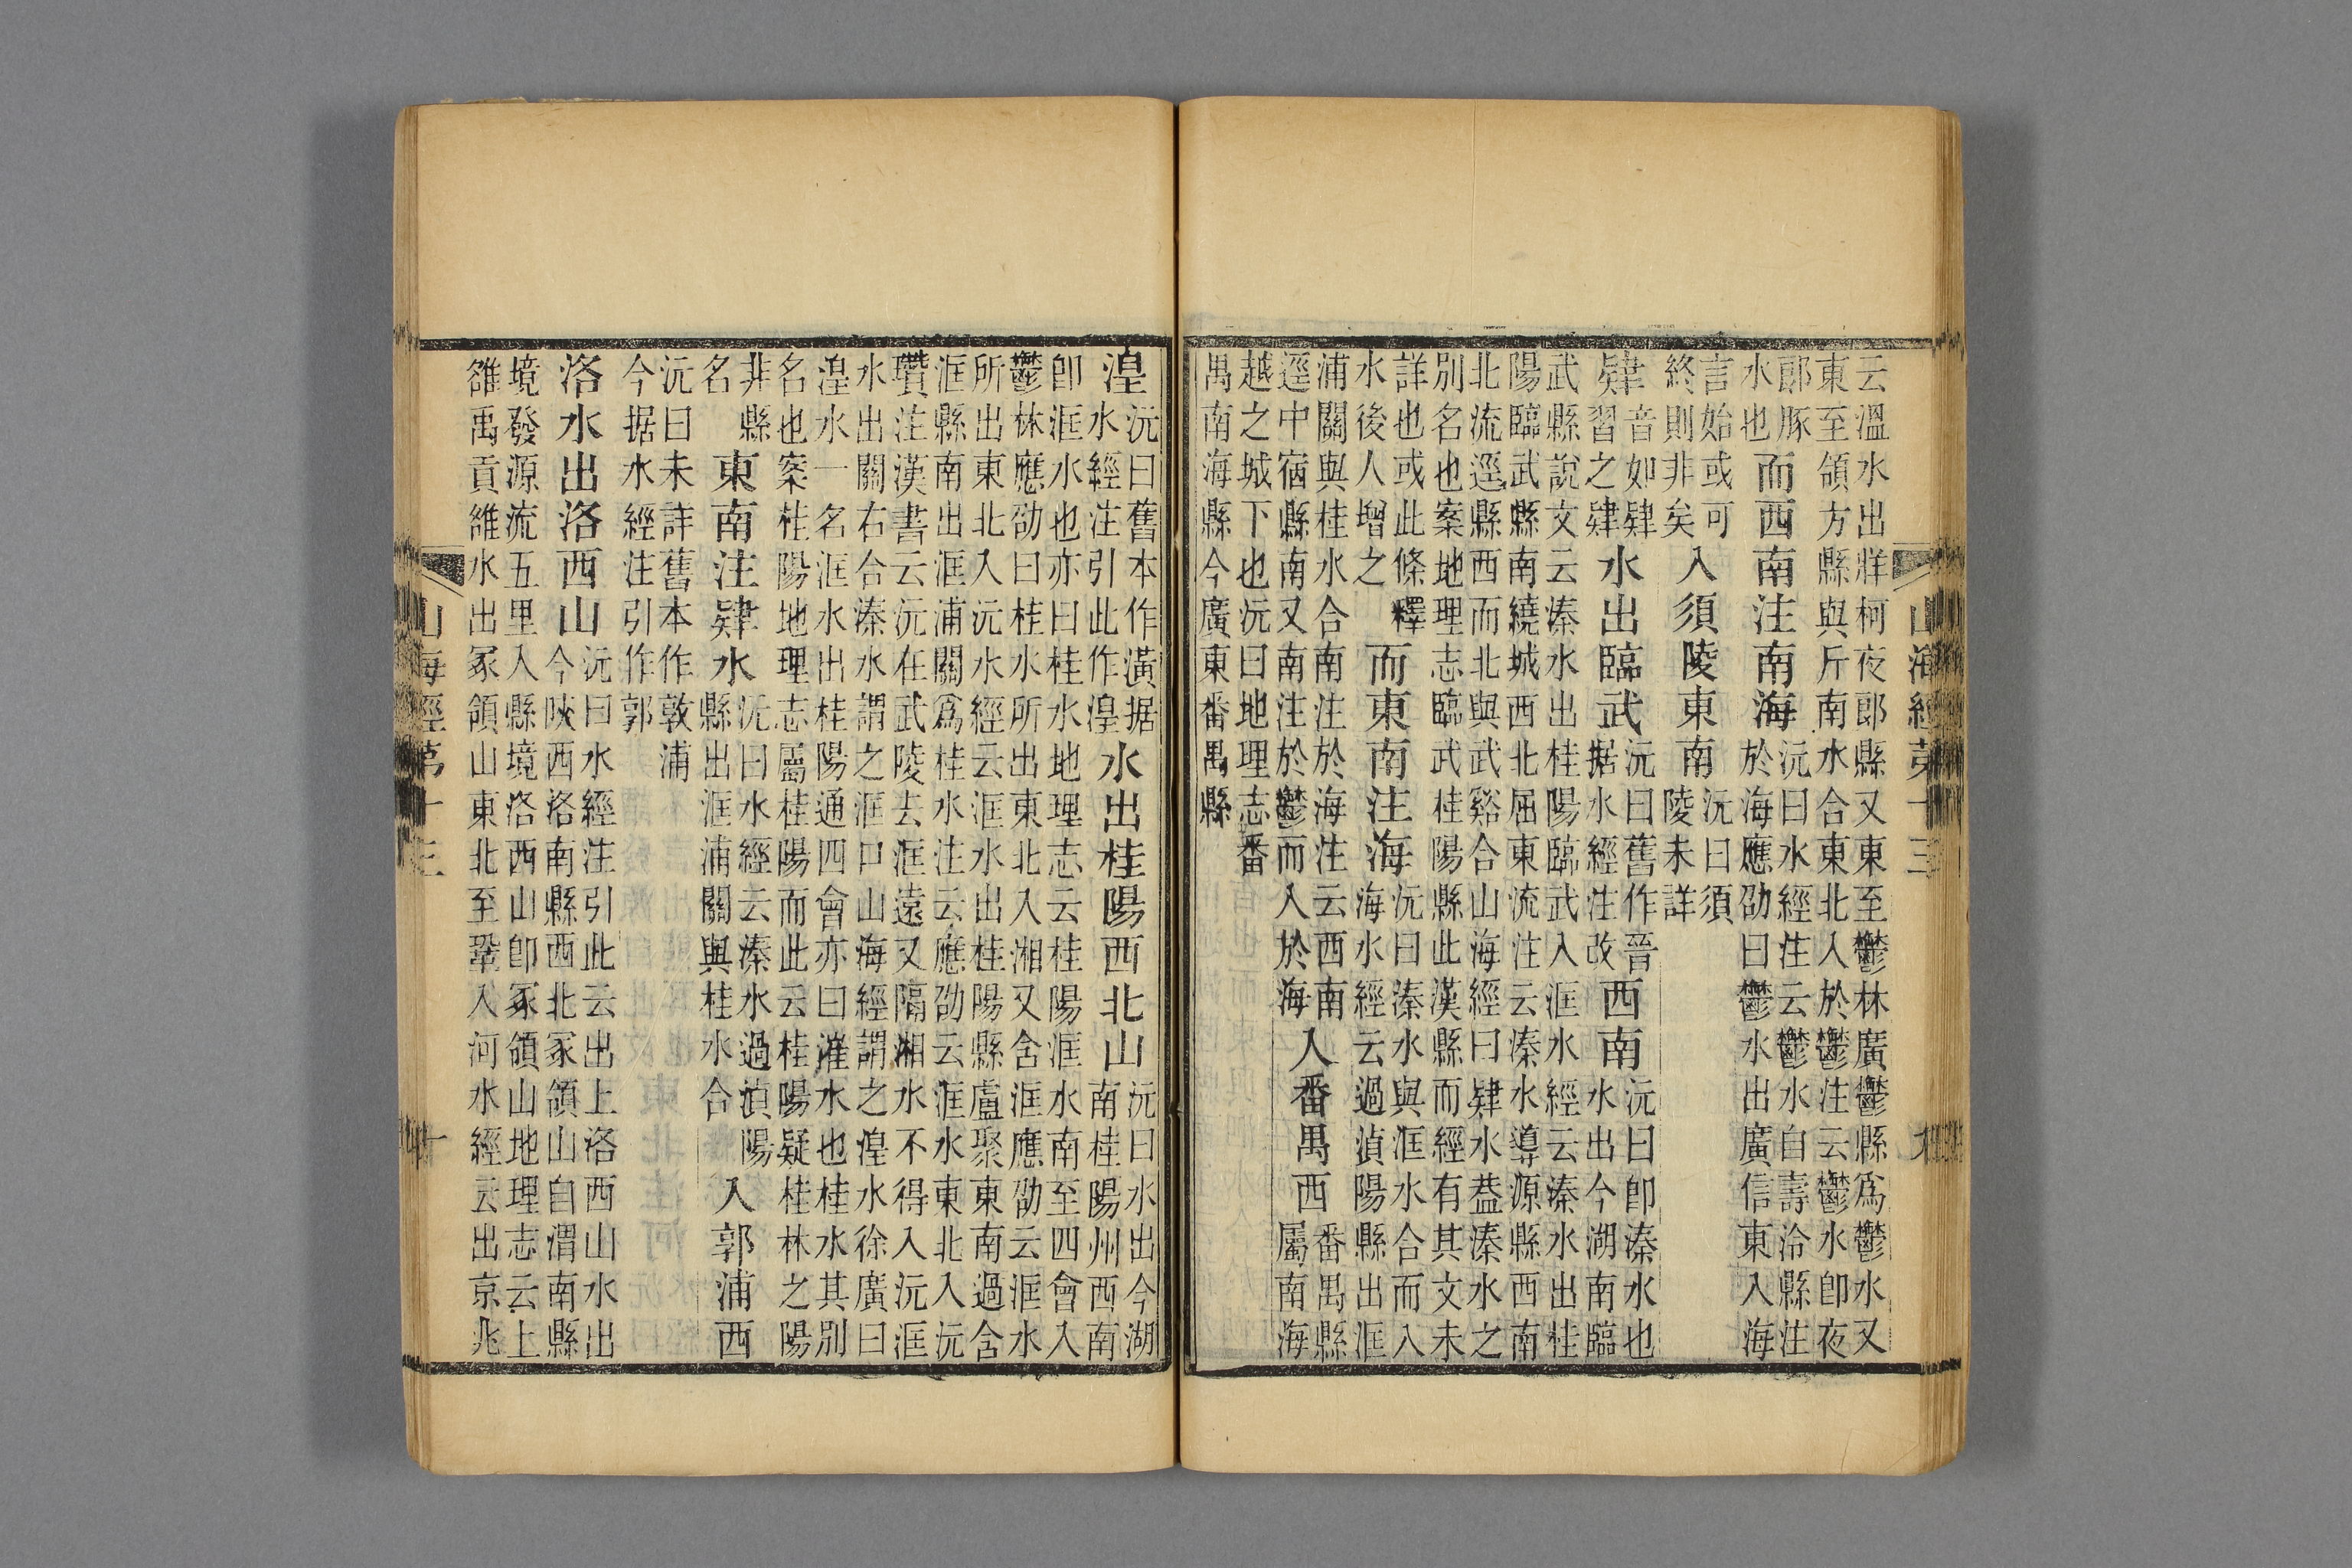 云溫水出牂柯夜郎縣又東至鬱林廣鬱縣爲鬱水又
東至領方縣與斤南水合東北入於鬱注云鬱水卽夜
郎豚水也而西南注南海沅曰水經注云鬱水自壽泠縣注於海應劭曰鬱水出廣信東入海
言始或可終則非矣入須陵東南沅曰須陵未詳
肄音如肄習之肄水出臨武沅曰舊作晉据水經注改西南沅曰卽溱水也水出今湖南臨
武縣說文云溱水出桂陽臨武入洭水經云溱水出桂
陽臨武縣南繞城西北屈東流注云溱水導源縣西南
北流逕縣西而北與武谿合山海經曰肄水葢溱水之
別名也案地理志臨武桂陽縣此漢縣而經有其文未
詳也或此條釋水後人增之而東南注海沅曰溱水與洭水合而入海水經云過湞陽縣出洭
浦關與桂水合南注於海注云西南
逕中宿縣南又南注於鬱而入於海入番禺西番禺縣屬南海
越之城下也沅曰地理志番
禺南海縣今廣東番禺縣
山海經第十三
九
湟沅曰舊本作潢据水經注引此作湟水出桂陽西北山沅曰水出今湖南桂陽州西南
卽洭水也亦曰桂水地理志云桂陽洭水南至四會入
鬱林應劭曰桂水所出東北入湘又含洭應劭云洭水
所出東北入沅水經云洭水出桂陽縣盧聚東南過含
洭縣南出洭浦關爲桂水注云應劭云洭水東北入沅
瓚注漢書云沅在武陵去洭遠又隔湘水不得入沅洭
水出關右合溱水謂之洭口山海經謂之湟水徐廣曰
湟水一名洭水出桂陽通四會亦曰漼水也桂水其別
名也案桂陽地理志屬桂陽而此云桂陽疑桂林之陽
非縣名東南注肄水沅曰水經云溱水過湞陽縣出洭浦關與桂水合入郭浦西
沅曰未詳舊本作敦浦
今据水經注引作郭
洛水出洛西山沅曰水經注引此云出上洛西山水出今陝西洛南縣西北冢領山自渭南縣
境發源流五里入縣境洛西山卽冢領山地理志云上
雒禹貢維水出冢領山東北至鞏入河水經云出京兆
山海經第十三
十